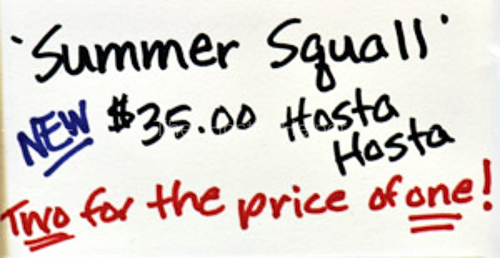 'Summer Squall'
NEW $35.00 Hosta
Hosta
Two for the price of one!